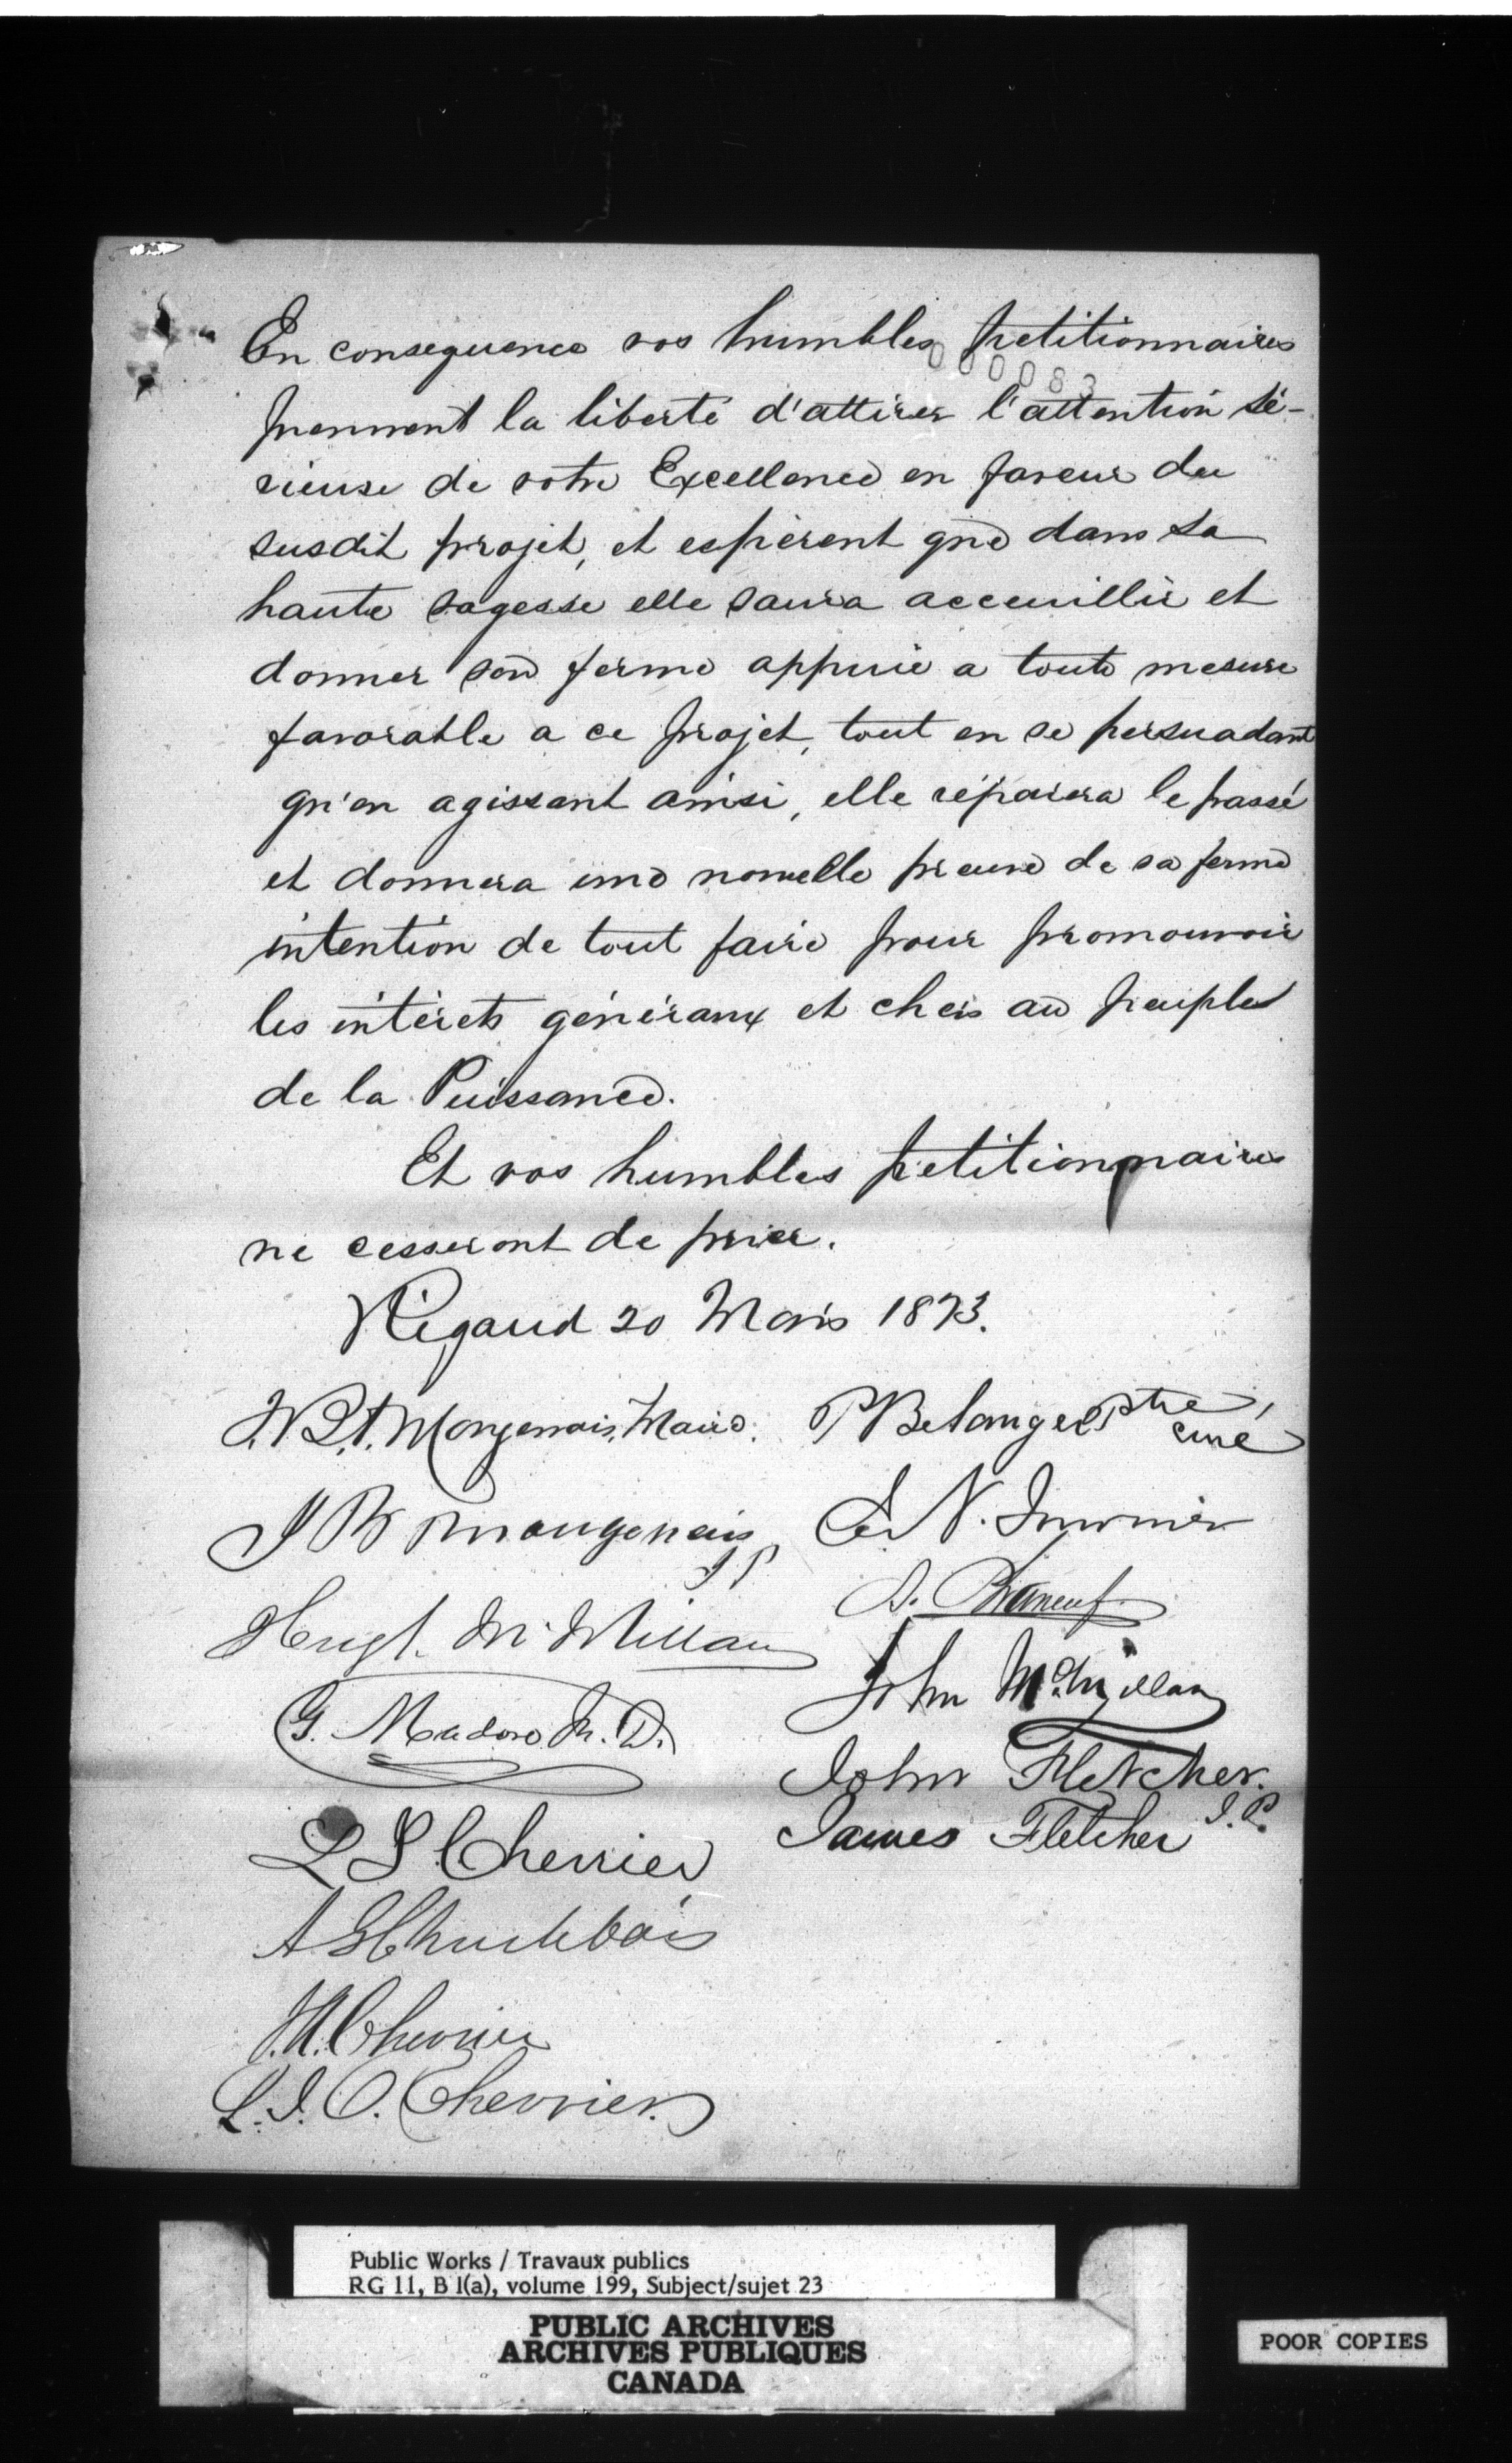 En consequence vos humbles petitionnaires
000083
prennent la liberté d'attirer l'attention sé-
rieuse de votre Excellence en faveur du
susdit projet, et espèrent que dans sa
haute sagesse elle saura acceuillir et
donner son ferme appuie a toute mesure
favorable a ce projet, tout en se persuadant
qu'en agissant ainsi, elle réparera le passé
et donnera une nouvelle preuve de sa ferme
intention de tout faire pour promouvoir
les intérets généraux et chers au peuple
de la Puissance.
Et vos humbles petitionnaires
ne cesseront de prier.
Rigaud 20 Mars 1873.
J. Bt. Mongenais, Maire. P Belanger Ptre, curé
J B Mongenais J P
E N.
Hugh McMillan
John McMillan
G. Madore M. D.
John Fletcher. J. P.
James Fletcher
L S Cherrier
A G
Cherrier
L. J. O. Cherrier.
Public Works / Travaux publics
RG 11, B 1(a), volume 199, Subject/sujet 23
PUBLIC ARCHIVES
ARCHIVES PUBLIQUES
CANADA
POOR COPIES